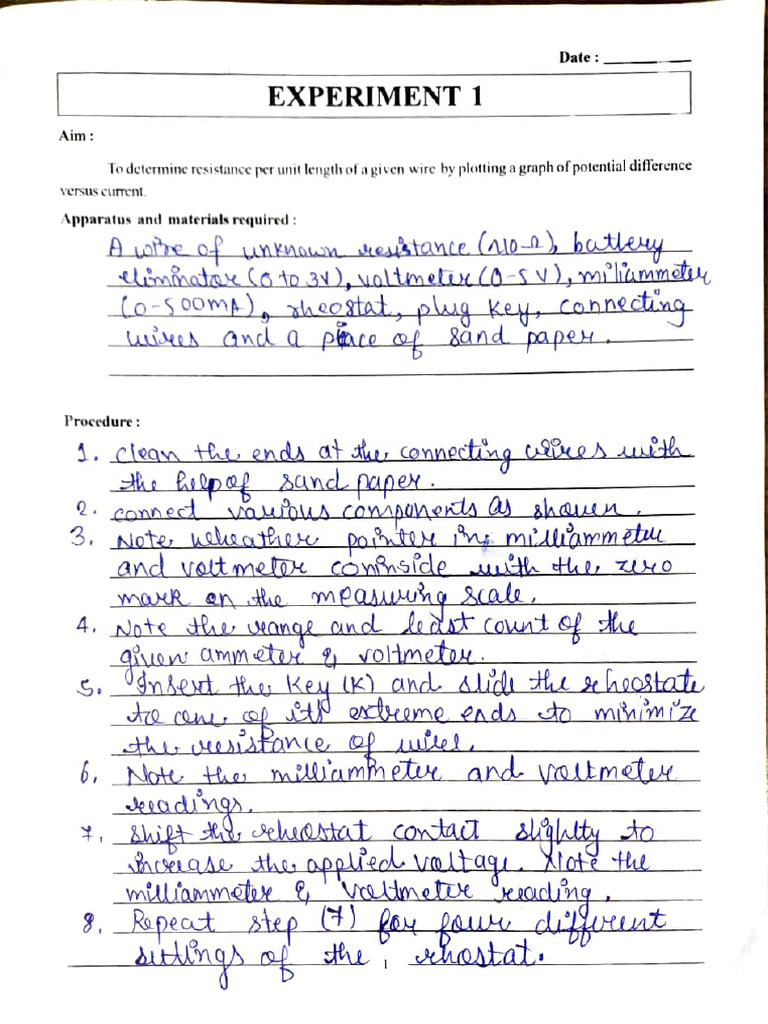 Date : ________
EXPERIMENT 1
Aim :
To determine resistance per unit length of a given wire by plotting a graph of potential difference
versus current.
Apparatus and materials required :
A wire of unknown resistance (~10 Ω), battery
eliminator (0 to 3V), voltmeter (0-5V), miliammeter
(0-500mA), rheostat, plug key, connecting
wires and a piace of sand paper.
Procedure :
1. clean the ends at the connecting wires with
the help of sand paper.
2. connect various components as shown.
3. Note wheather pointer in milliammeter
and voltmeter coninside with the zero
mark on the measuring scale.
4. Note the range and least count of the
given ammeter & voltmeter.
5. Insert the key (K) and slide the rheostate
to one of its extreme ends to minimize
the resistance of wires.
6. Note the milliammeter and voltmeter
readings.
7. shift the rheostat contact slighlty to
increase the applied voltage. Note the
milliammeter & voltmeter reading.
8. Repeat step (7) for four different
settings of the rhostat.
1